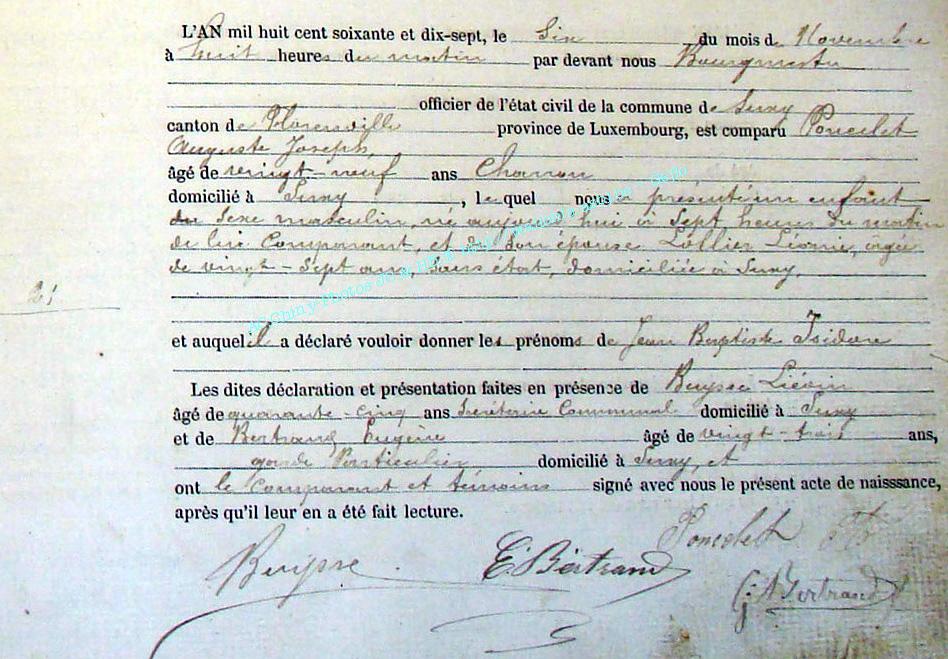 L'AN mil huit cent soixante et dix-sept, le Six du mois de Novembre
à huit heures du matin par devant nous Bourgmestre
officier de l'état civil de la commune de Suxy
canton de Florenville province de Luxembourg, est comparu Poncelet
Auguste Joseph,
âgé de vingt-neuf ans Charron
domicilié à Suxy, lequel nous a présenté un enfant
du Sexe masculin, né aujourd'hui à Sept heures du matin
de lui Comparant, et de Son épouse Lollier Léonie, âgée
de vingt-Sept ans Sans état, domiciliée à Suxy,
21
et auquel il a déclaré vouloir donner les prénoms de Jean Baptiste Isidore
Les dites déclaration et présentation faites en présence de Buysse Liévin
âgé de quarante-cinq ans Secrétaire Communal domicilié à Suxy
et de Bertrand Eugène âgé de vingt-trois ans,
garde Particulier domicilié à Suxy, et
ont le Comparant et témoins signé avec nous le présent acte de naisssance,
après qu'il leur en a été fait lecture.
Poncelet
Buysse E. Bertrand
Bertrand